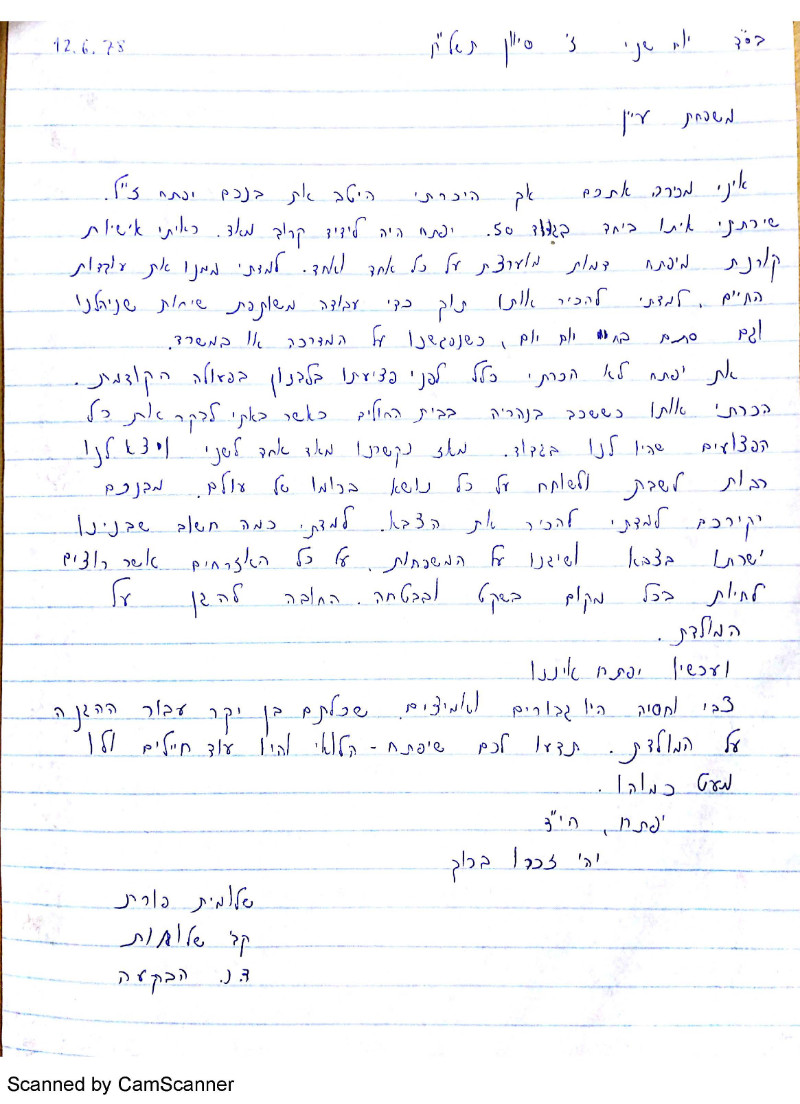 12.6.78
בס"ד יום שני ז' סיון תשל"ח
משפחת עיין
איני מכירה אתכם אך היכרתי היטב את בנכם יפתח ז"ל.
שירתתי איתו ביחד בגדוד 50. יפתח היה לידיד קרוב מאד. ראיתי אישיות
קורנת מיפתח דמות מוערצת על כל אחד ואחד. למדתי ממנו את עובדות
החיים, למדתי להכיר אותו תוך כדי עבודה משותפת שיחות שניהלנו
וגם סתם יום יום, כשנפגשנו על המדרכה או במשרד.
את יפתח לא הכרתי כלל לפני פציעתו בלבנון בפעולה הקודמת.
הכרתי אותו כששכב בנהריה בבית החולים כאשר באתי לבקר את כל
הפצועים שהיו לנו בגדוד. מאז נקשרנו מאד אחד לשני ויצא לנו
רבות לשבת ולשוחח על כל נושא ברומו של עולם. מבנכם
יקירכם למדתי להכיר את הצבא. למדתי כמה חשוב שבנינו
ישרתו בצבא ושיגנו על המשפחות, על כל האזרחים אשר רוצים
לחיות בכל מקום בשקט ובבטחה. החובה להגן על
המולדת.
ועכשיו יפתח איננו
צבי וחסיה היו גבורים ואמיצים. שכלתם בן יקר עבור ההגנה
על המולדת. תדעו לכם שיפתח - הלואי והיו עוד חיילים ולו
מעט כמוהו.
יפתח, הי"ד
יהי זכרו ברוך
שלומית פורת
קב' שלוחות
ד.נ. הבקעה
Scanned by CamScanner